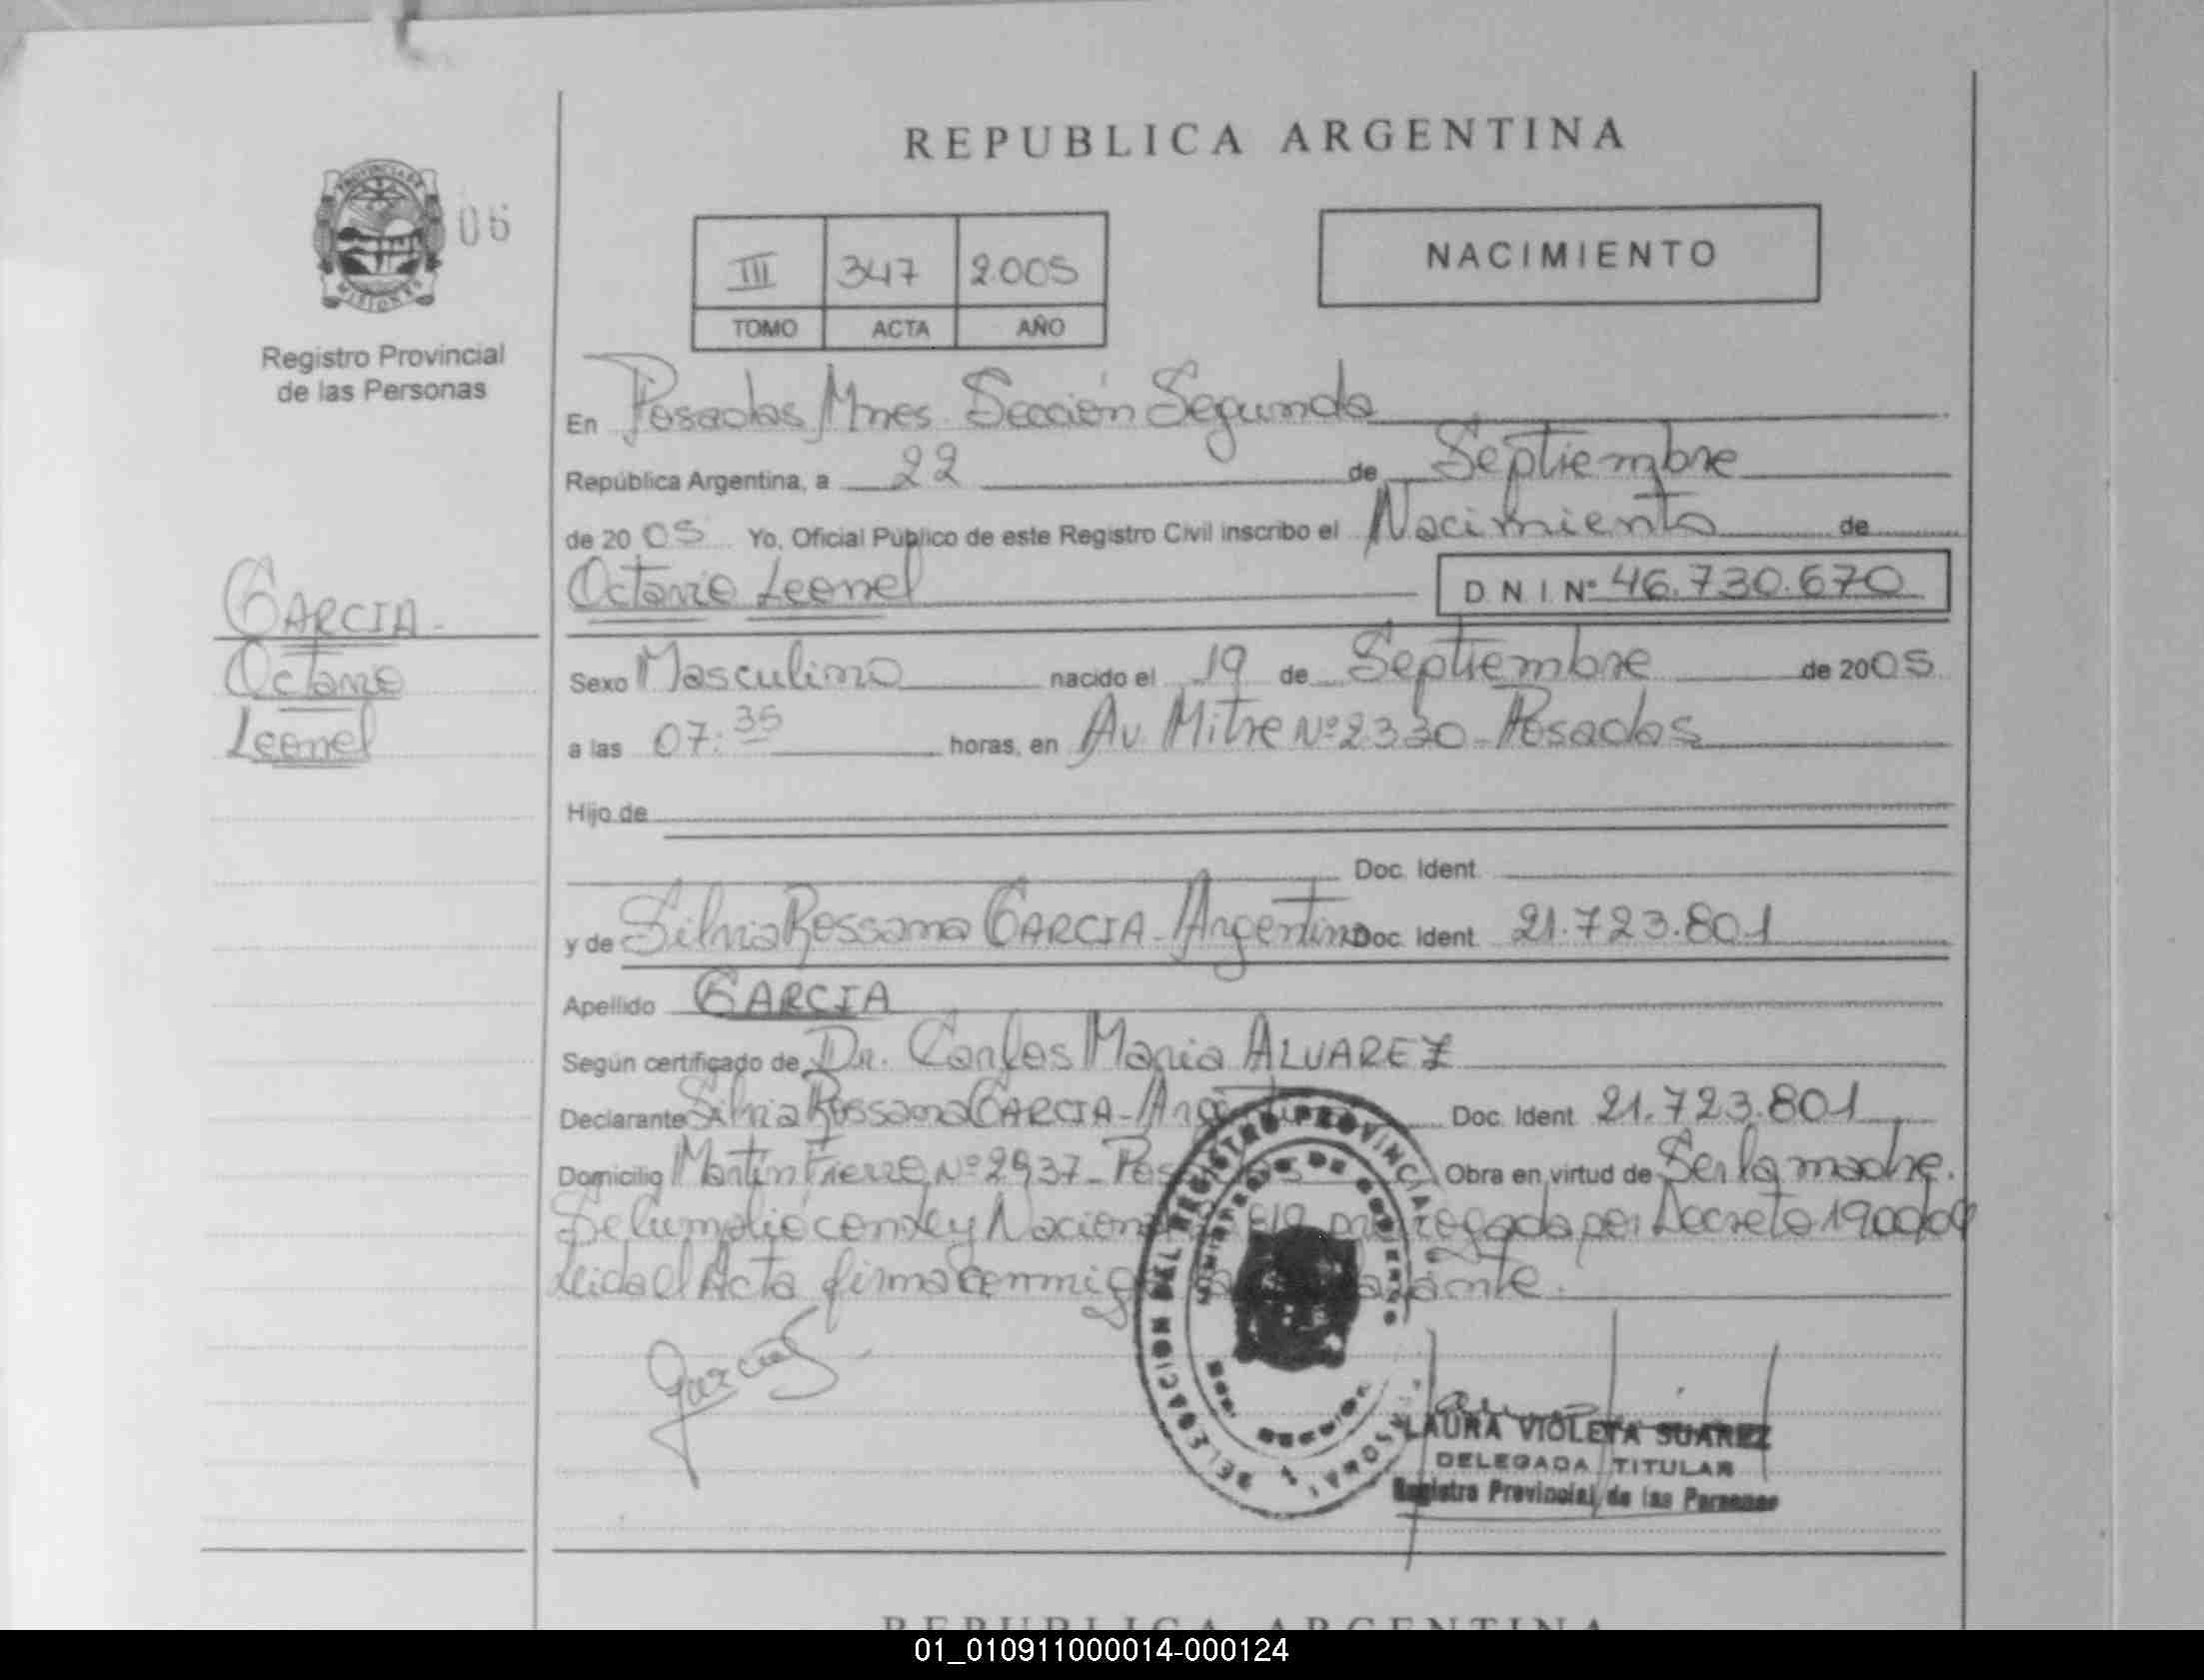 REPUBLICA ARGENTINA
PROVINCIA DE
MISIONES
06
Registro Provincial
de las Personas
III 347 2.005
TOMO ACTA AÑO
NACIMIENTO
En Posadas Mnes. Sección Segunda
República Argentina, a 22 de Septiembre
de 2005 Yo, Oficial Público de este Registro Civil inscribo el Nacimiento de
Octavio Leonel D N I Nº 46.730.670
GARCIA.
Octavio
Leonel
Sexo Masculino nacido el 19 de Septiembre de 2005
a las 07:35 horas, en Av Mitre Nº 2330 - Posadas
Hijo de
Doc. Ident.
y de Silvia Rossana GARCIA - Argentina Doc. Ident. 21.723.801
Apellido GARCIA
Según certificado de Dr. Carlos Maria ALVAREZ
Declarante Silvia Rossana GARCIA - Doc. Ident. 21.723.801
Domicilio Martín Fierro Nº 2937 - Obra en virtud de Ser la madre.
Se cumplió con Ley por Decreto
Leida el Acta firma conmigo la
Garcia
DELEGACION DEL REGISTRO PROVINCIAL
MINISTERIO DE GOBIERNO
LAURA VIOLETA SUAREZ
DELEGADA TITULAR
Registro Provincial de las Personas
REPUBLICA ARGENTINA
01_010911000014-000124